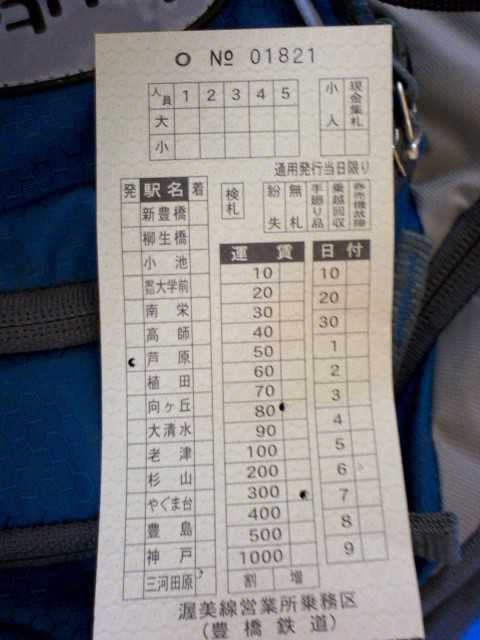 O № 01821
人員 1 2 3 4 5
大
小
小人
現金集札
通用発行当日限り
発 駅名 着
新豊橋
柳生橋
小池
愛知大学前
南栄
高師
芦原
植田
向ヶ丘
大清水
老津
杉山
やぐま台
豊島
神戸
三河田原
検札
紛失
無札
手廻り品
乗越回収
券売機故障
運賃
10
20
30
40
50
60
70
80
90
100
200
300
400
500
1000
割増
日付
10
20
30
1
2
3
4
5
6
7
8
9
渥美線営業所乗務区
(豊橋鉄道)